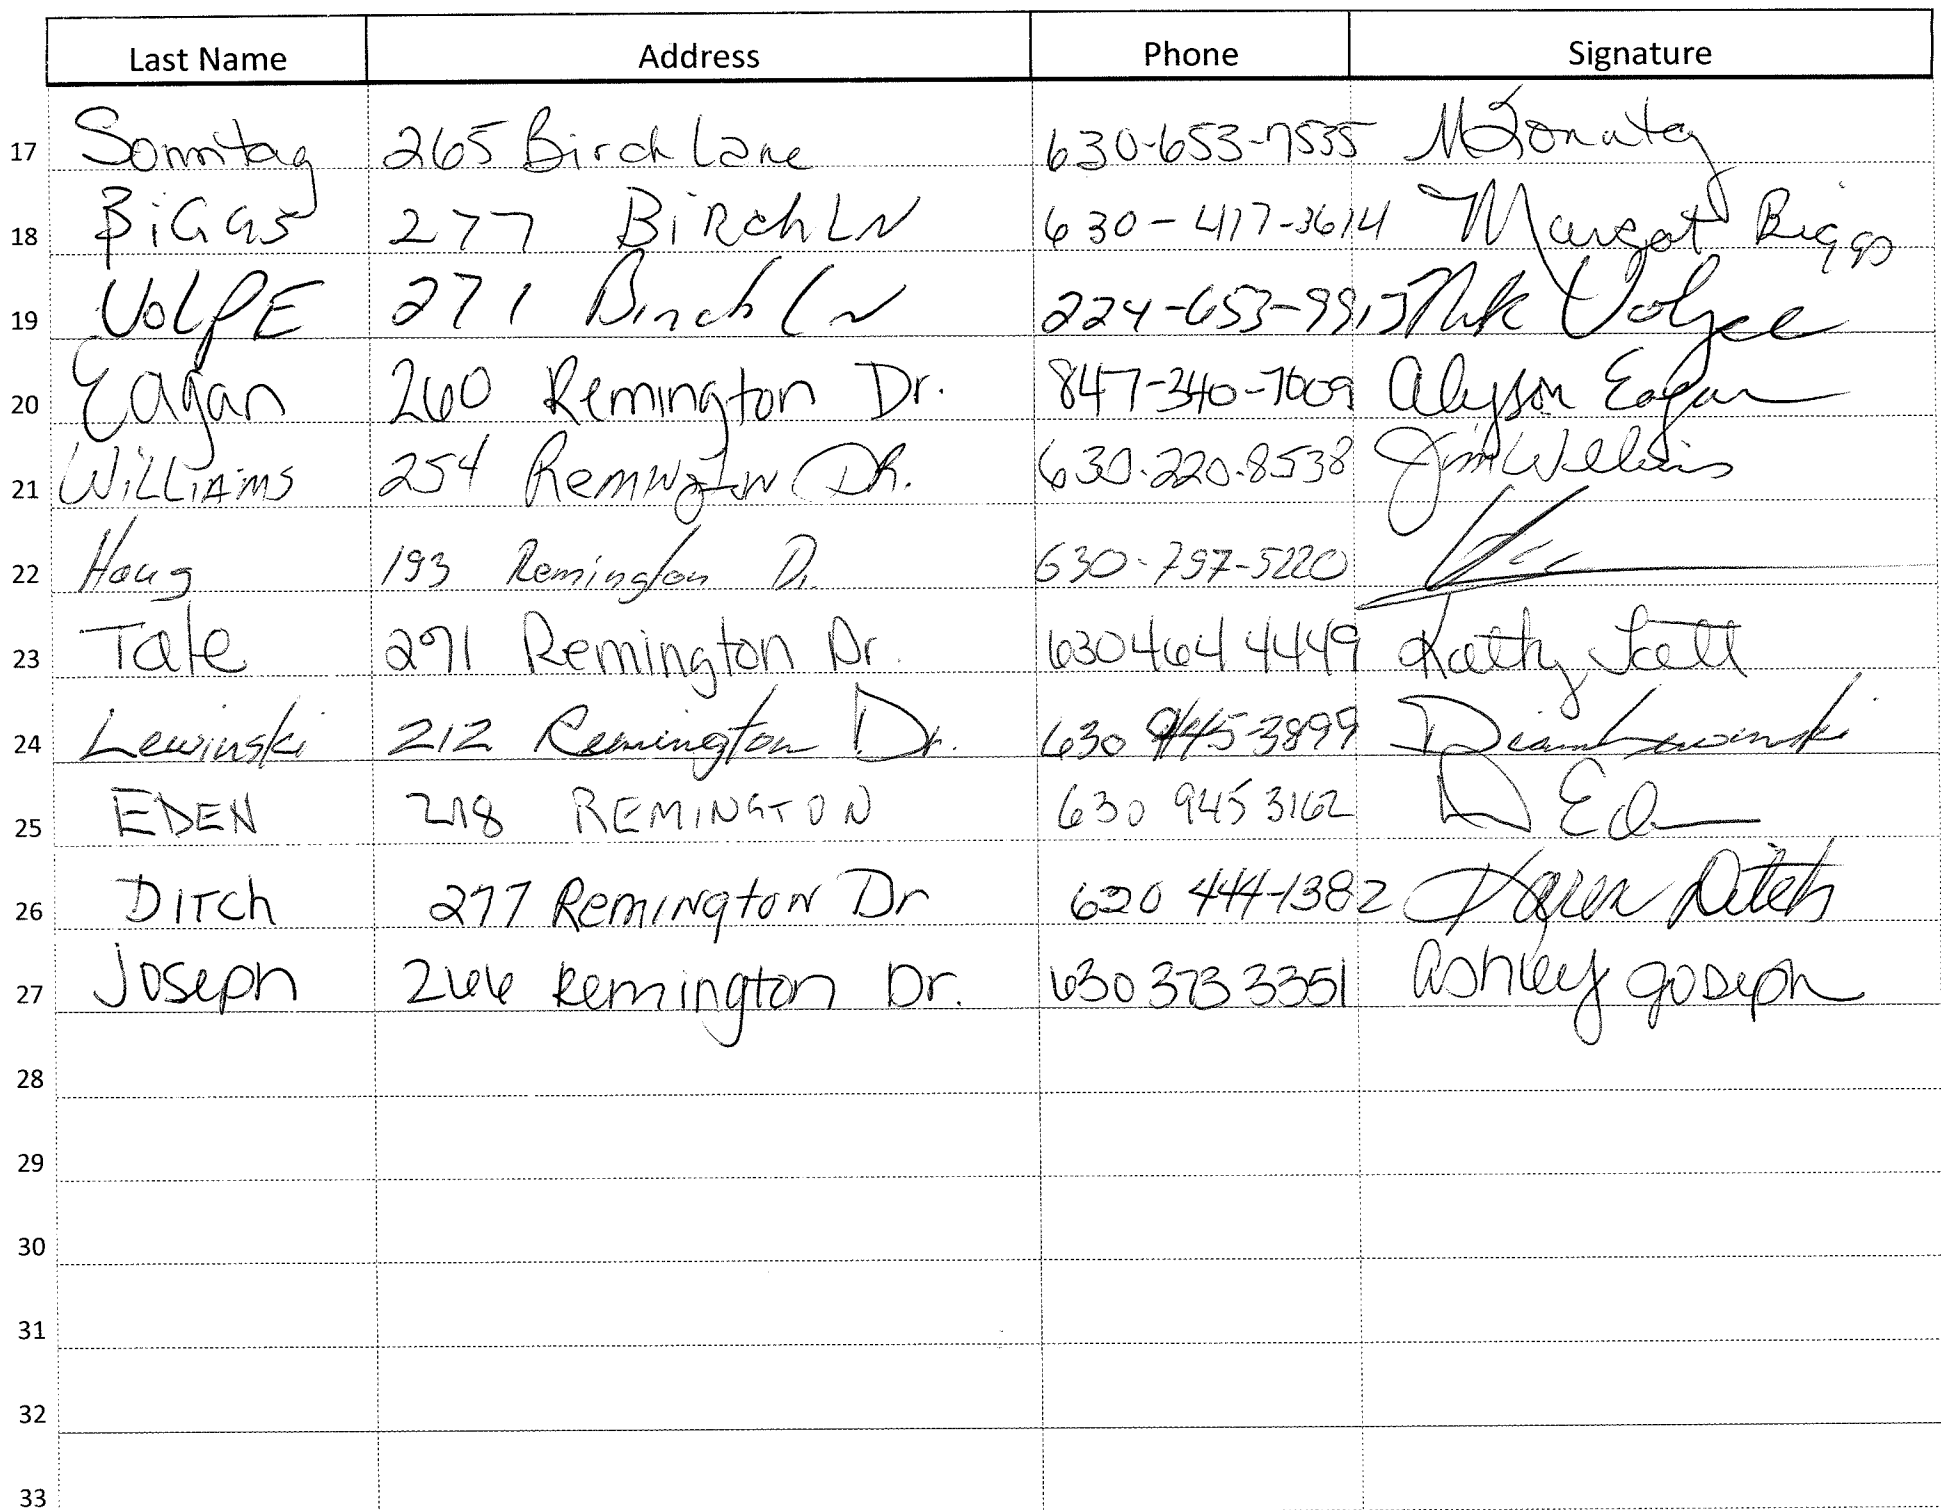 Last Name Address Phone Signature
17 Sonntag 265 Birch Lane 630-653-7535 M Sonntag
18 BiGGS 277 BiRch LN 630-417-3614 Margot Biggs
19 VOLPE 271 Birch Ln 224-653-9915 Volpe
20 Eagan 260 Remington Dr. 847-340-7609 Alyson Eagan
21 WiLLiAmS 254 Remington DR. 630.220.8538 Jim Williams
22 Haug 193 Remington Dr 630-797-5220
23 Tate 291 Remington Dr. 630 464 4449 Kathy
24 Lewinski 212 Remington Dr. 630 945-3899 Lewinski
25 EDEN 218 REMINGTON 630 945 3162 D Eden
26 DITch 277 Remington Dr 630 444-1382 Karen Ditch
27 Joseph 266 Remington Dr. 630 373 3351 Ashley Joseph
28
29
30
31
32
33